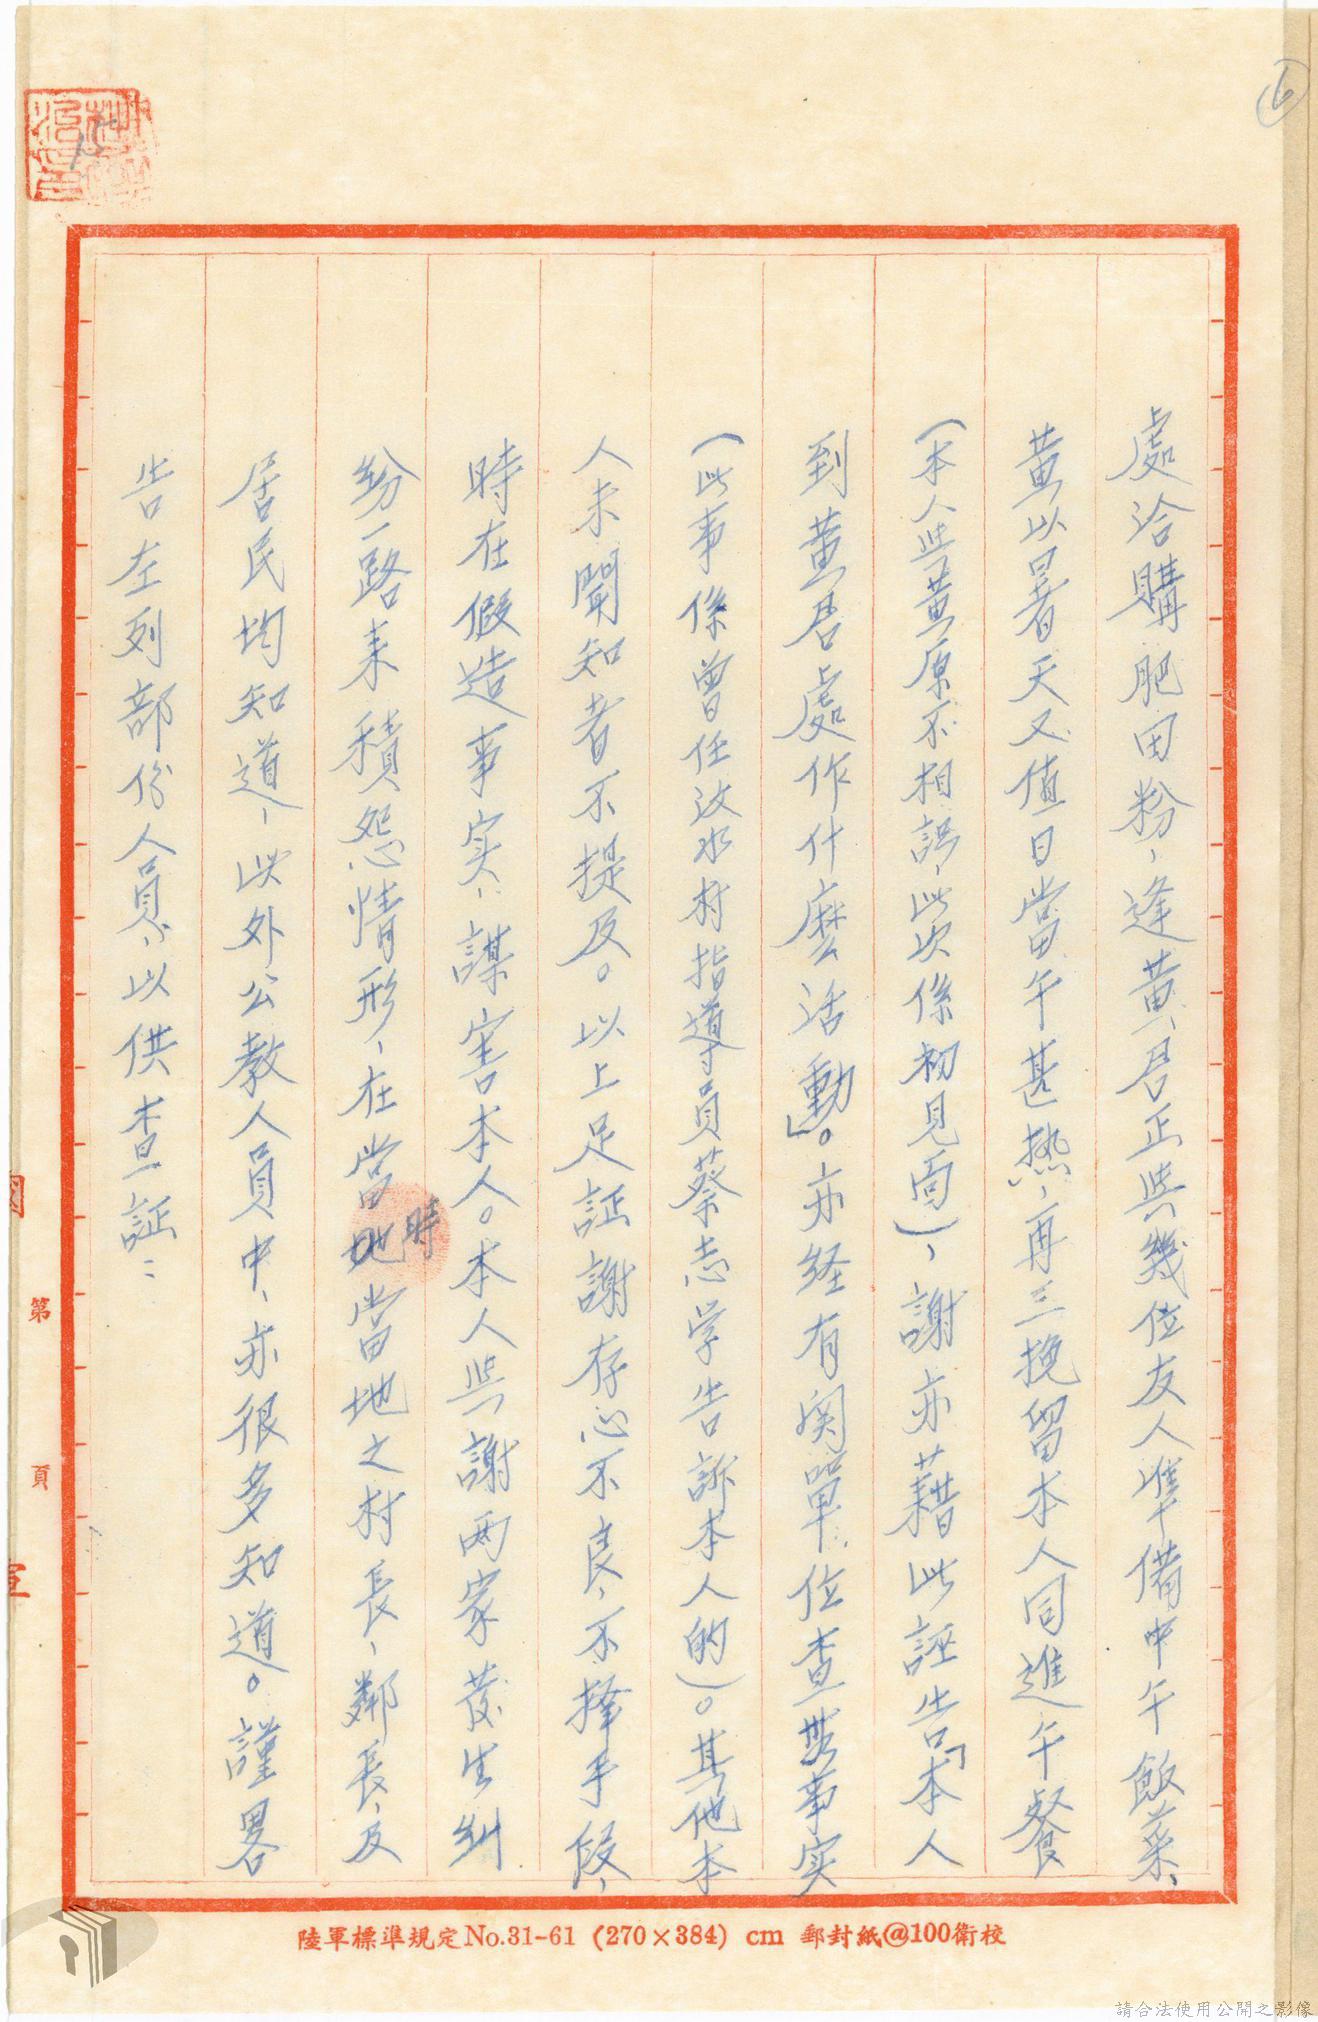 處洽購肥田粉，逢黃君正與幾位友人準備中午飯菜、
黃以暑天又值日當午甚热，再三挽留本人同進午餐
（本人與黃原不相識，此次係初見面），謝亦藉此誣告「本人
到黃君處作什麼活動」。亦经有関單位查無事实
（此事係曾任汶水村指導員蔡志学告訴本人的）。其他本
人未聞知者不提及。以上足証謝存心不良，不擇手段，
時在假造事实，謀害本人。本人與謝两家發生糾
紛一路来積怨情形，在當時當地之村長，鄰長，及
居民均知道，此外公教人員中，亦很多知道。謹畧
告左列部份人員，以供查証：
第 頁
陸軍標準規定No.31-61 (270×384) cm 郵封紙@100衛校
請合法使用公開之影像
6
15